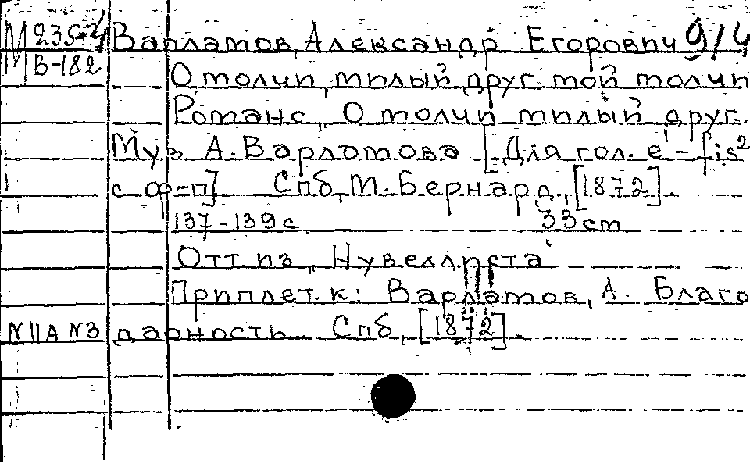 М 235-4 Варламов, Александр Егорович 9/4
М В-182
О молчи, милый друг мой молчи
Романс „О молчи милый друг.
Муз А. Варламова [Для гол. e'-fis²
с ф-п]. Спб, М. Бернард, [1872].
137-139 с 33 cm
Отт из „Нувеллиста
Приплет. к: Варламов, А. Благо
NIIA N3 дарность. Спб, [1872].